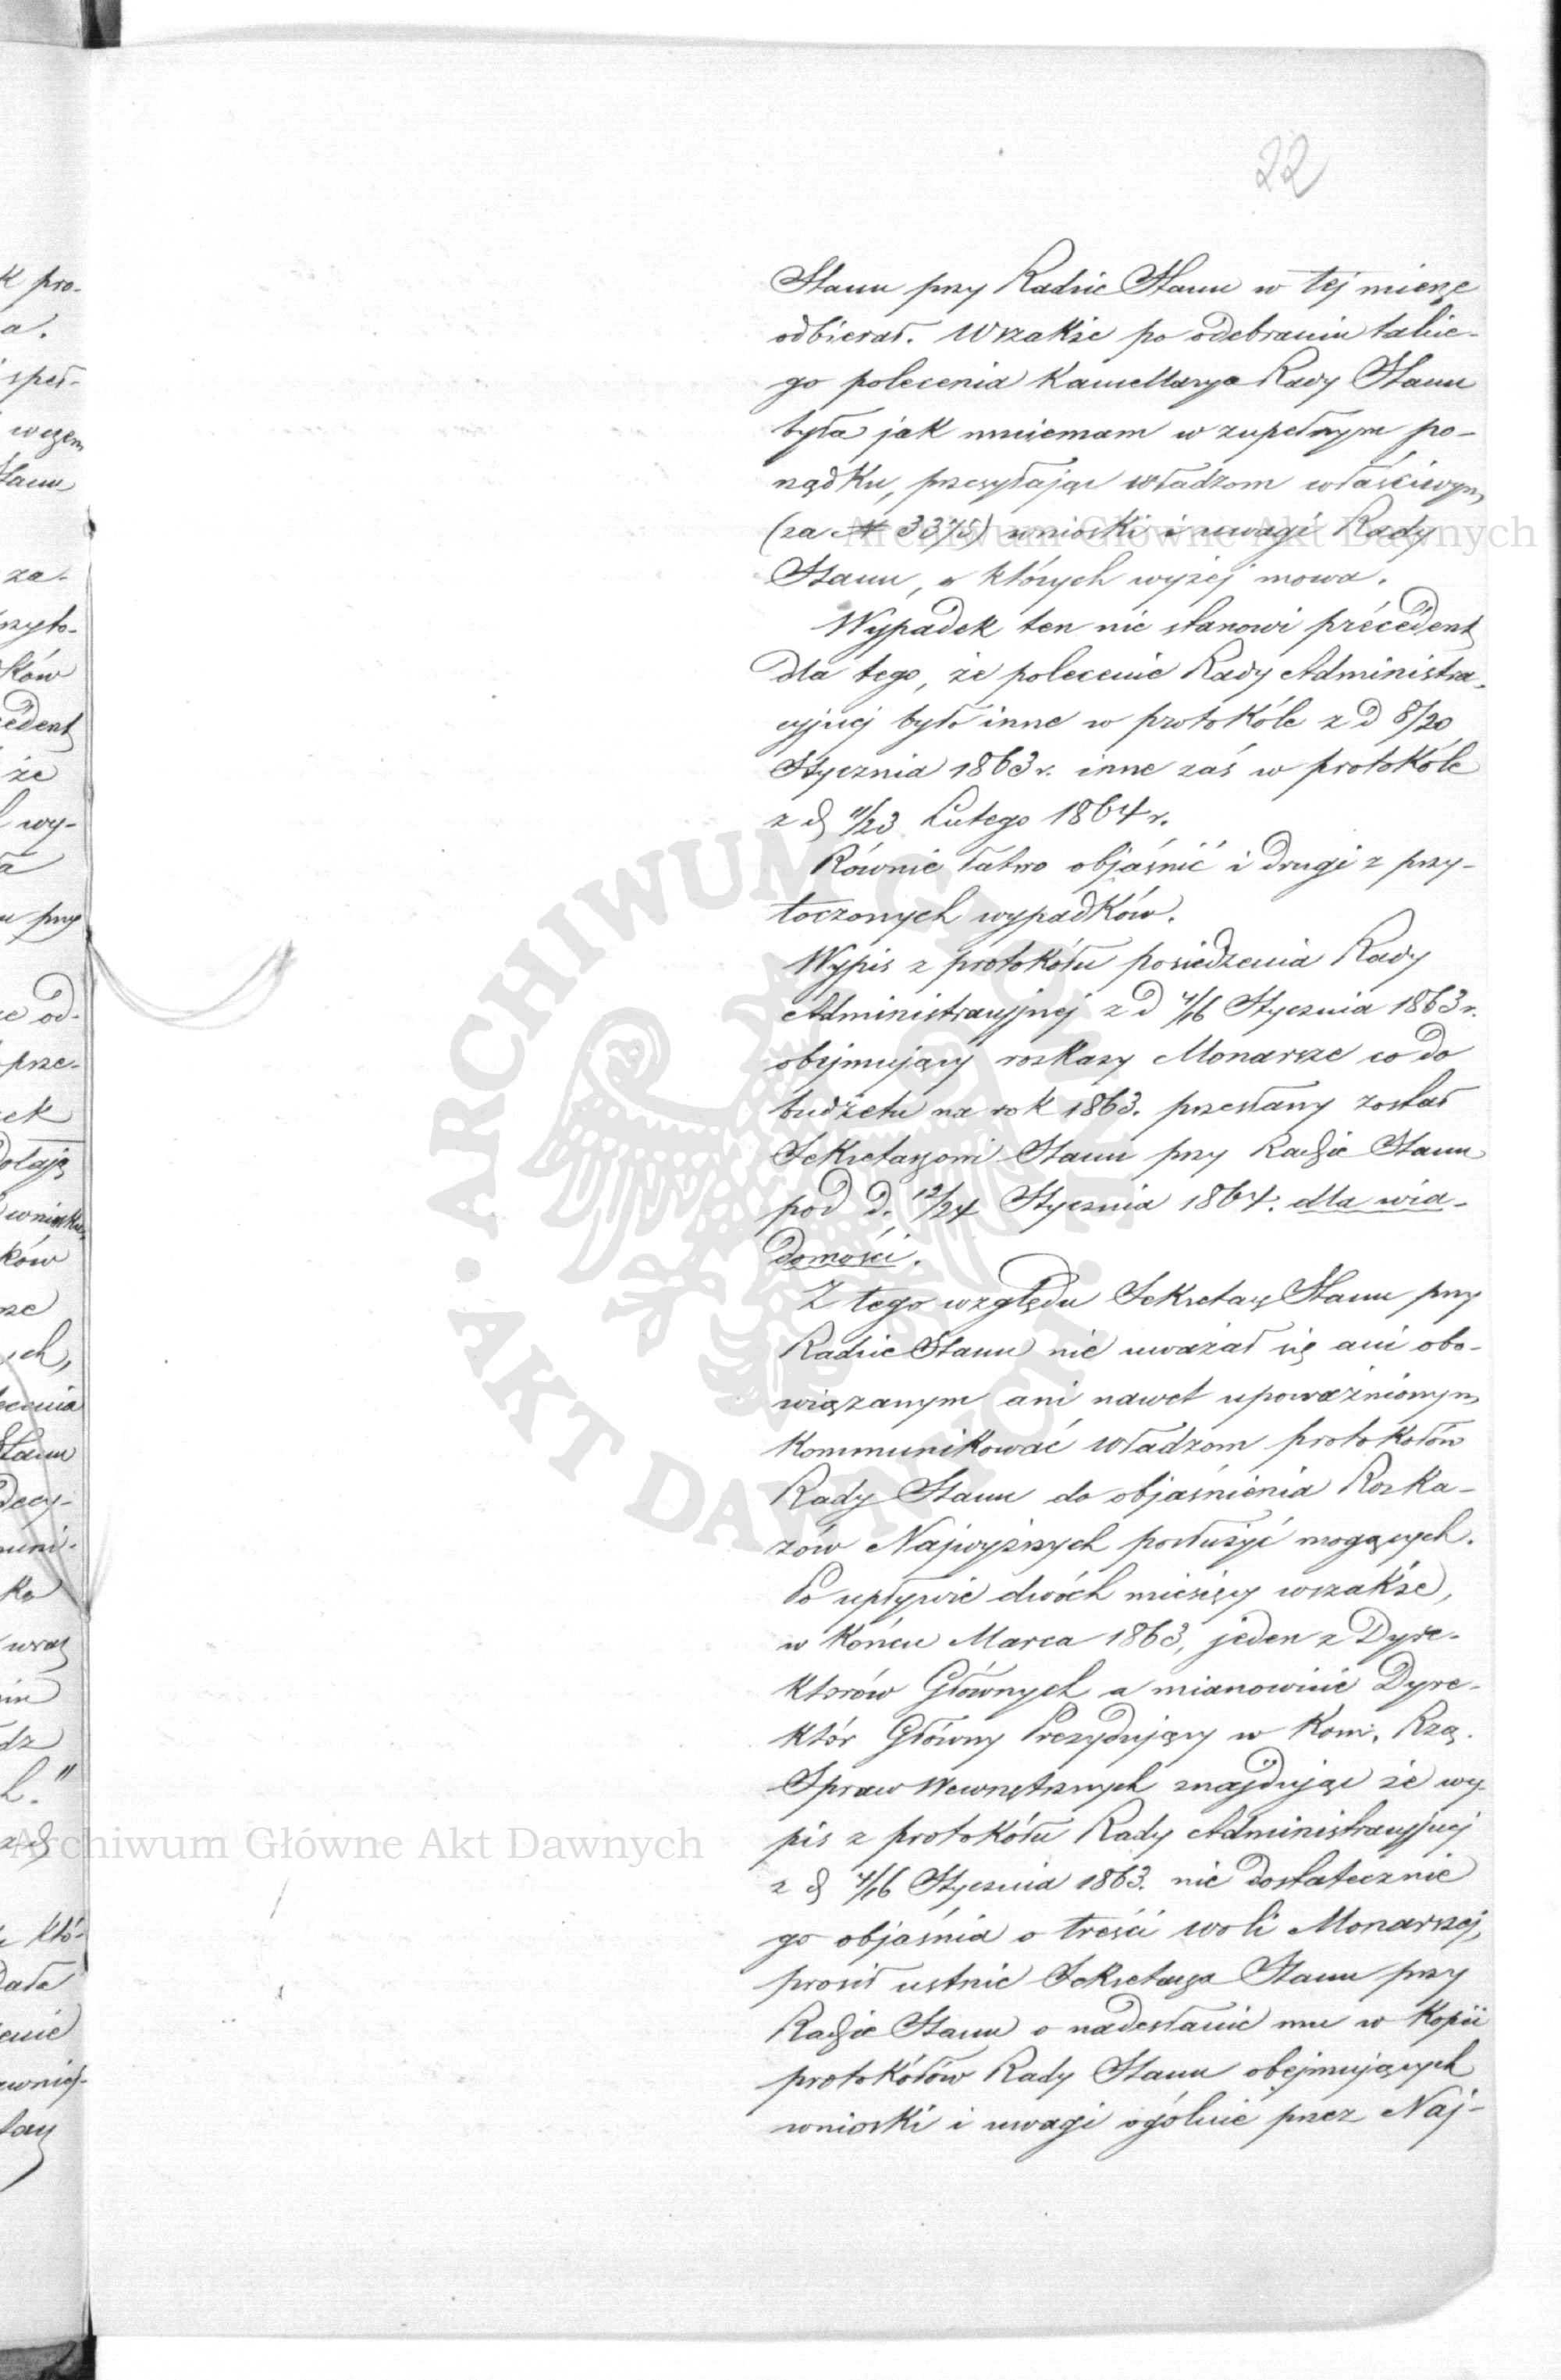 22
Stanu przy Radzie Stanu w tej mierze
odbierał. Wszakże po odebraniu takie-
go polecenia Kancellarya Rady Stanu
była jak mniemam w zupełnym po-
rządku, przesyłając władzom właściwym
(za № 3375) wnioski i uwagi Rady
Stanu, o których wyżej mowa.
Wypadek ten nie stanowi précédent
dla tego, że polecenie Rady Administra-
cyjnej było inne w protokóle z d 8/20
Stycznia 1863 r. inne zaś w protokóle
z d 11/23 Lutego 1864 r.
Równie łatwo objaśnić i drugi z przy-
toczonych wypadków.
Wypis z protokółu posiedzenia Rady
Administracyjnej z d 4/16 Stycznia 1863 r.
obejmujący rozkazy Monarsze co do
budżetu na rok 1863. przesłany został
Sekretarzowi Stanu przy Radzie Stanu
pod d. 12/24 Stycznia 1864. dla wia-
domości.
Z tego względu Sekretarz Stanu przy
Radzie Stanu nie uważał się ani obo-
wiązanym ani nawet upoważnionym
kommunikować władzom protokołów
Rady Stanu do objaśnienia Rozka-
zów Najwyższych posłużyć mogących.
Po upływie dwóch miesięcy wszakże,
w końcu Marca 1863, jeden z Dyre-
ktorów Głównych a mianowicie Dyre-
któr Główny Prezydujący w Kom. Rzą.
Spraw Wewnętrznych znajdując że wy-
pis z protokółu Rady Administracyjnej
z d 4/16 Stycznia 1863. nie dostatecznie
go objaśnia o treści woli Monarszej,
prosił ustnie Sekretarza Stanu przy
Radzie Stanu o nadesłanie mu w kopii
protokółów Rady Stanu obejmujących
wnioski i uwagi ogólnie przez Naj-
Archiwum Główne Akt Dawnych
Archiwum Główne Akt Dawnych
ARCHIWUM GŁÓWNE AKT DAWNYCH